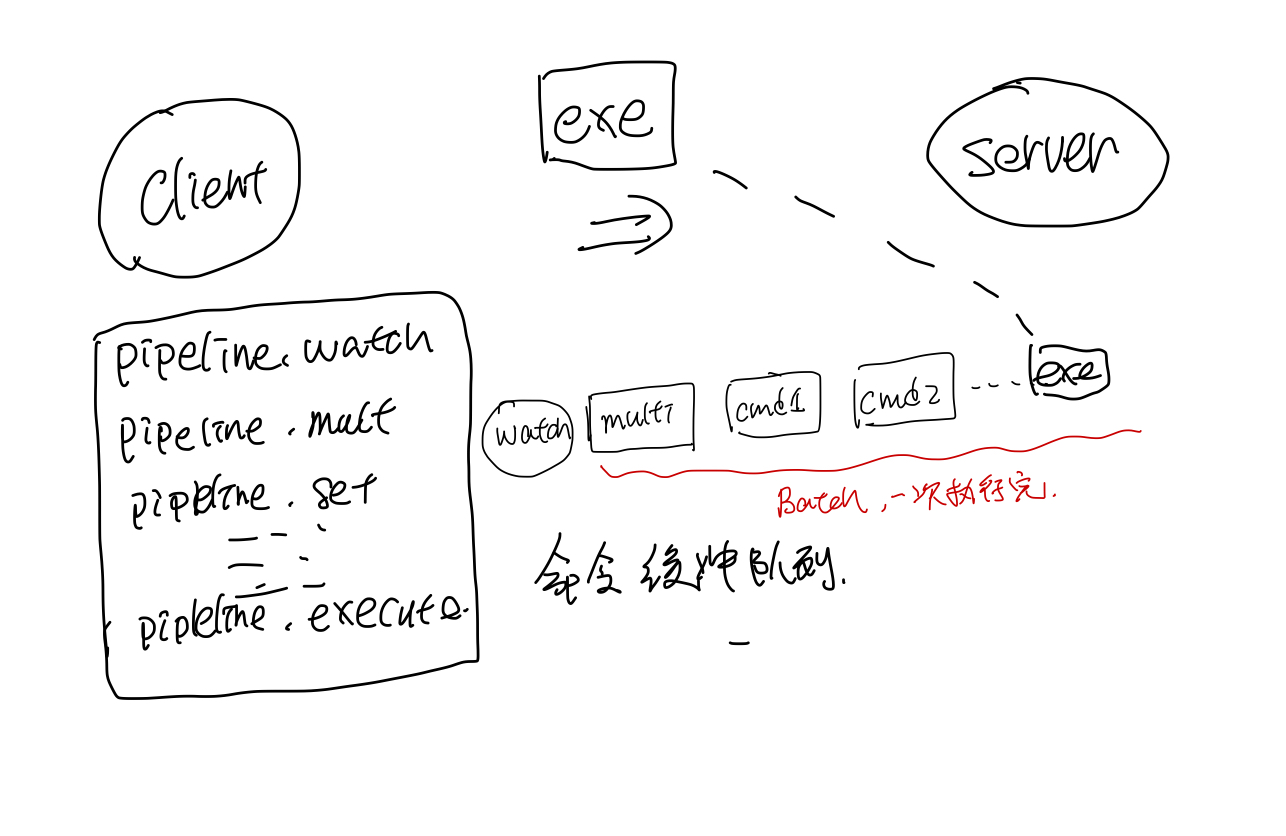 Client
exe
server
pipeline.watch
pipeline.mult
pipeline.set
pipeline.execute.
watch
multi
cmd1
cmd2
exe
Batch,一次执行完.
命令缓冲队列.